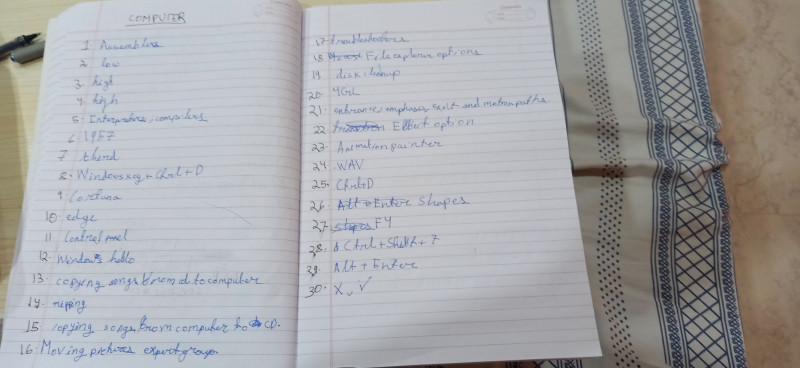 COMPUTER
1 Assemblers
2 low
3 high
4 high
5. Interpreters, compilers
6. 1957
7 third
8. Windows key + Ctrl + D
9 Cortana
10. edge
11 Control panel
12. Windows hello
13. copying songs from cd to computer
14. ripping
15 copying songs from computer to CD.
16. Moving pictures expert group.
17. troubleshooters
18 File explorer options
19. disk cleanup
20. 4GL
21. entrance, emphasis, exit and motion paths.
22 Effect option
23. Animation painter
24. WAV
25. Ctrl+D
26. Shapes
27. F4
28. Ctrl + Shift + 7
29. Alt + Enter
30. X, ✓